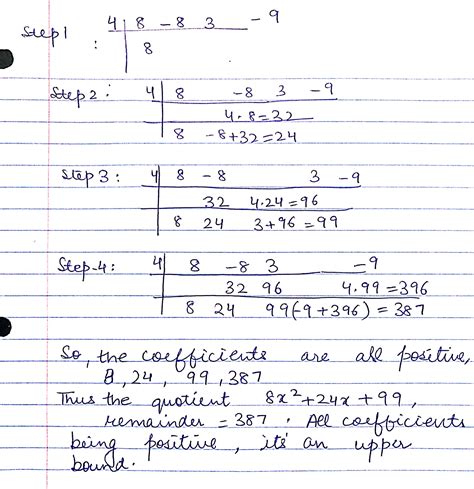 Step 1 : 4 8 -8 3 -9
8
Step 2 : 4 8 -8 3 -9
4.8=32
8 -8+32=24
Step 3 : 4 8 -8 3 -9
32 4.24=96
8 24 3+96=99
Step-4: 4 8 -8 3 -9
32 96 4.99=396
8 24 99(-9+396)=387
So, the coefficients are all positive,
8, 24, 99, 387
Thus the quotient 8x²+24x+99,
remainder = 387. All coefficients
being positive, its an upper
bound.